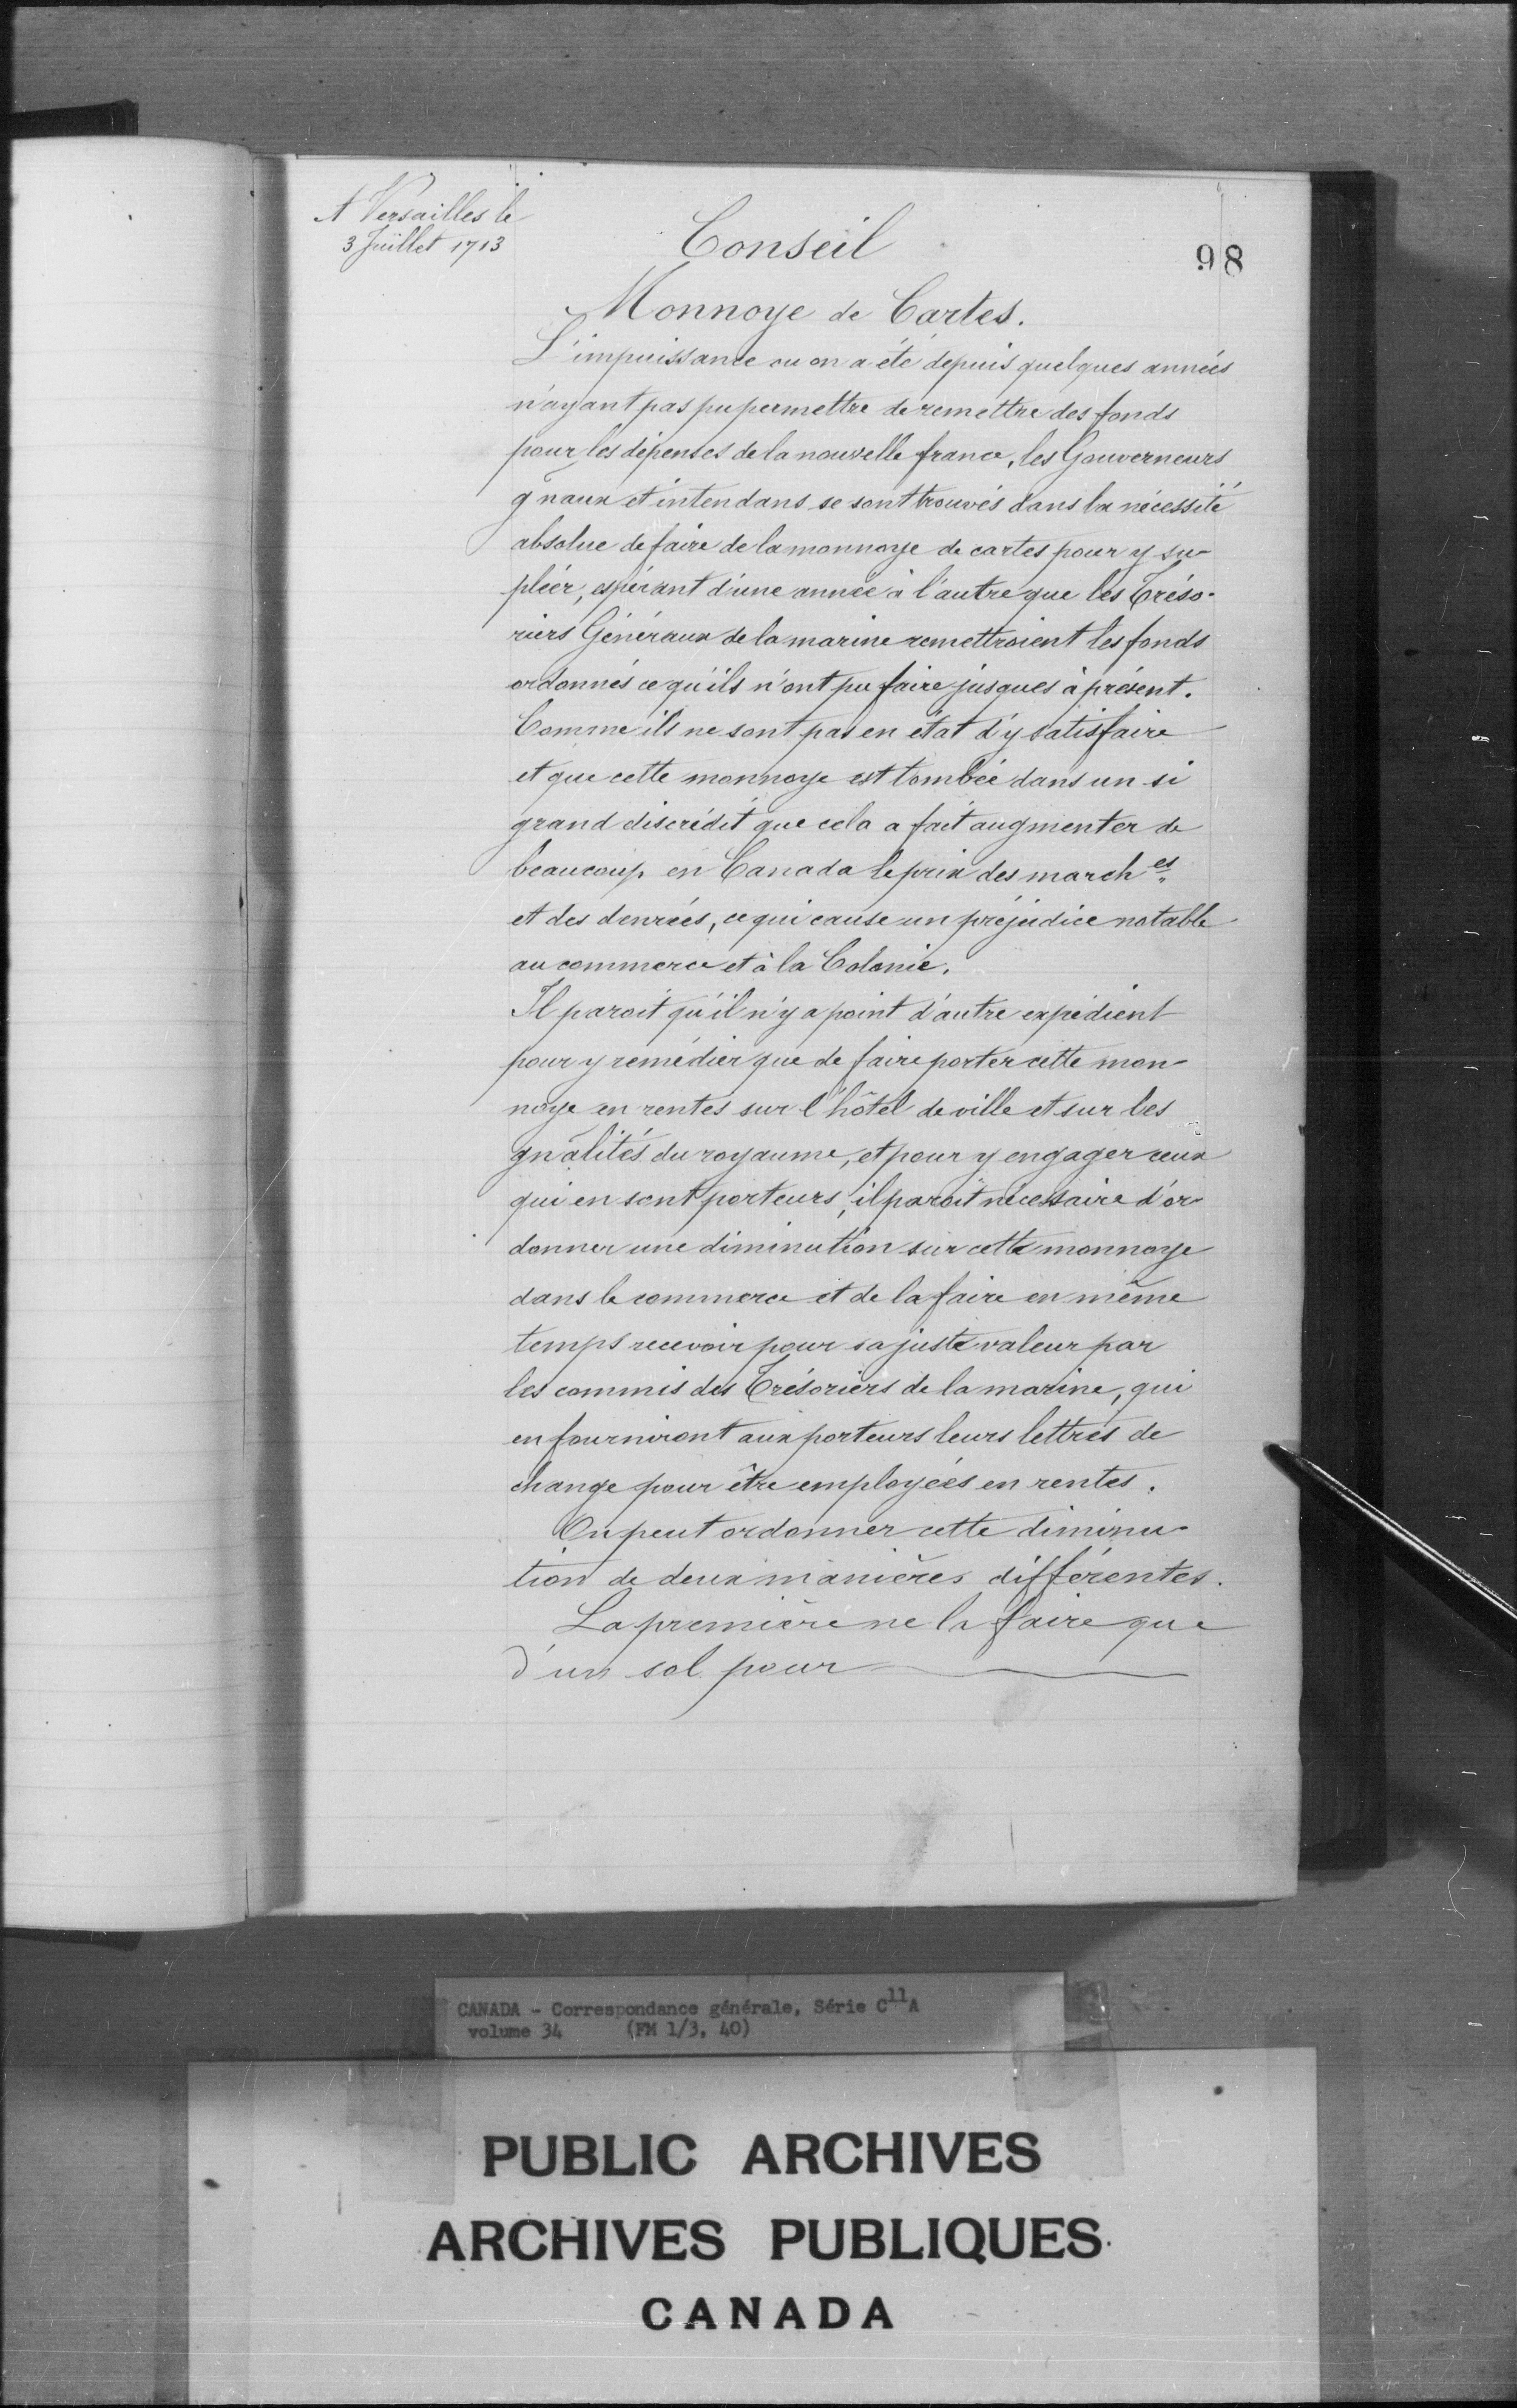 A Versailles le
3 Juillet 1713
Conseil
98
Monnoye de Cartes.
L'impuissance ou on a été depuis quelques années
n'ayant pas pu permettre de remettre des fonds
pour les dépenses de la nouvelle france, les Gouverneurs
g~naux et intendans se sont trouvés dans la nécessité
absolue de faire de la monnoye de cartes pour y su-
pléer, espérant d'une année à l'autre que les Tréso-
riers Généraux de la marine remettroient les fonds
ordonnés ce qu'ils n'ont pu faire jusques à présent.
Comme ils ne sont pas en état d'y satisfaire
et que cette monnoye est tombée dans un si
grand discrédit que cela a fait augmenter de
beaucoup en Canada le prix des march es
et des denrées, ce qui cause un préjudice notable
au commerce et à la Colonie.
Il paroit qu'il n'y a point d'autre expédient
pour y remédier que de faire porter cette mon-
noye en rentes sur l'hôtel de ville et sur les
gn~alités du royaume, et pour y engager ceux
qui en sont porteurs, il paroit nécessaire d'or-
donner une diminution sur cette monnoye
dans le commerce et de la faire en même
temps recevoir pour sa juste valeur par
les commis des Trésoriers de la marine, qui
en fourniront aux porteurs leurs lettres de
change pour être employées en rentes.
On peut ordonner cette diminu-
tion de deux manières différentes.
La première ne la faire que
d'un sol pour
CANADA - Correspondance générale, Série C11A
volume 34 (FM 1/3, 40)
PUBLIC ARCHIVES
ARCHIVES PUBLIQUES
CANADA